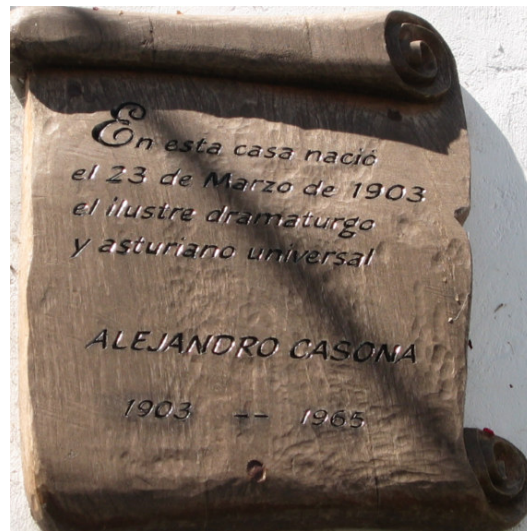 En esta casa nació
el 23 de Marzo de 1903
el ilustre dramaturgo
y asturiano universal
ALEJANDRO CASONA
1903 -- 1965